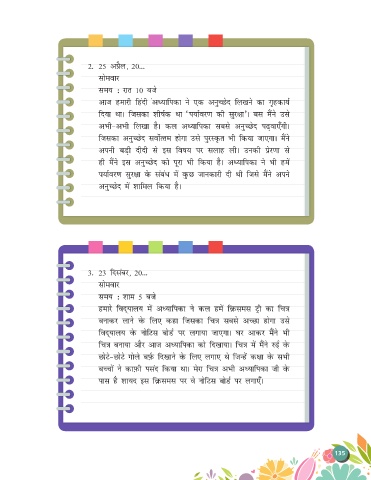 2. 25 अप्रैल, 20...
सोमवार
समय : रात 10 बजे
आज हमारी हिंदी अध्यापिका ने एक अनुच्छेद लिखने का गृहकार्य
दिया था। जिसका शीर्षक था 'पर्यावरण की सुरक्षा'। बस मैंने उसे
अभी-अभी लिखा है। कल अध्यापिका सबसे अनुच्छेद पढ़वाएँगी।
जिसका अनुच्छेद सर्वोत्तम होगा उसे पुरस्कृत भी किया जाएगा। मैंने
अपनी बड़ी दीदी से इस विषय पर सलाह ली। उनकी प्रेरणा से
ही मैंने इस अनुच्छेद को पूरा भी किया है। अध्यापिका ने भी हमें
पर्यावरण सुरक्षा के संबंध में कुछ जानकारी दी थी जिसे मैंने अपने
अनुच्छेद में शामिल किया है।
3. 23 दिसंबर, 20...
सोमवार
समय : शाम 5 बजे
हमारे विद्यालय में अध्यापिका ने कल हमें क्रिसमस ट्री का चित्र
बनाकर लाने के लिए कहा जिसका चित्र सबसे अच्छा होगा उसे
विद्यालय के नोटिस बोर्ड पर लगाया जाएगा। घर आकर मैंने भी
चित्र बनाया और आज अध्यापिका को दिखाया। चित्र में मैंने रुई के
छोटे-छोटे गोले बर्फ़ दिखाने के लिए लगाए थे जिन्हें कक्षा के सभी
बच्चों ने काफ़ी पसंद किया था। मेरा चित्र अभी अध्यापिका जी के
पास है शायद इस क्रिसमस पर वे नोटिस बोर्ड पर लगाएँ।
135